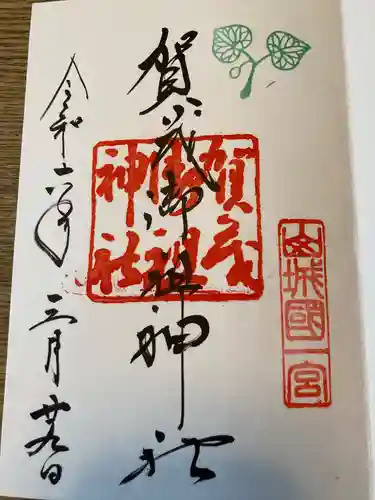 山城國一宮
賀茂御祖神社
賀茂
御祖
神社
令和六年
三月
廿九日